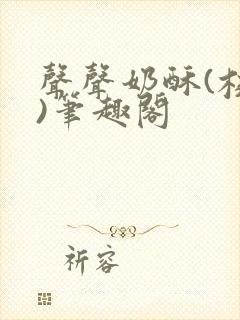 聲聲奶酥(
)筆趣閣
祈容